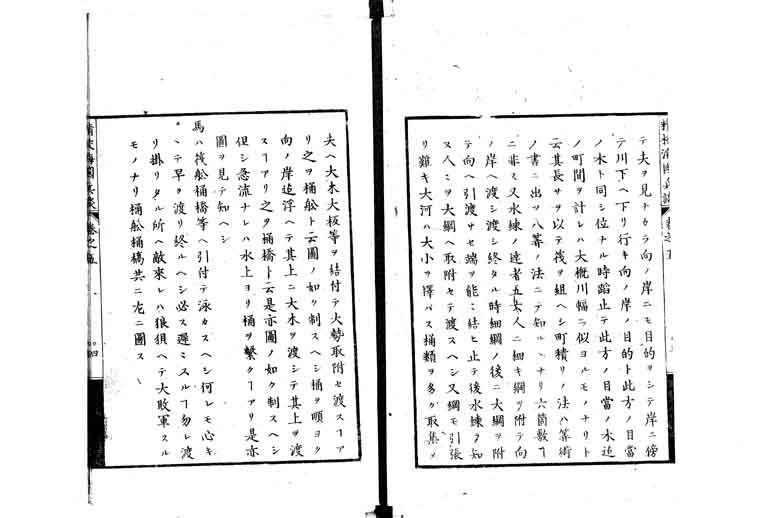 テ夫ヲ見ナカラ向ノ岸ニモ目的ヲシテ岸ニ傍
テ川下ヘ下リ行キ向ノ岸ノ目的ト此方ノ目當
ノ木ト同シ位ナル時蹈止テ此方ノ目當ノ木迠
ノ町間ヲ計レハ大概川幅ニ似ヨルモノナリト
云其長サヲ以テ筏ヲ組ヘシ町積リノ法ハ筭術
ノ書ニ出ツ八筭ノ法ニテ知ルヿナリ六箇敷ヿ
ニ非ス又水練ノ達者五六人ニ細キ綱ヲ附テ向
ノ岸ヘ渡シ渡シ終タル時細綱ノ後ニ大綱ヲ附
テ向ヘ引渡サセ端ヲ能ニ結ヒ止テ後水練ヲ知
ヌ人ニヲ大綱ヘ取附セテ渡スヘシ又綱モ引張
リ難キ大河ハ大小ヲ擇バス桶類ヲ多ク取集メ
夫ヘ大木大板等ヲ結付テ大勢取附セ渡スヿア
リ之ヲ桶舩ト云圖ノ如ク制スヘシ桶ヲ順ヨク
向ノ岸迠浮ヘテ其上ニ大木ヲ渡シテ其上ヲ渡
スヿアリ之ヲ桶橋ト云是亦圖ノ如ク制スヘシ
但シ急流ナレハ水上ヨリ桶ヲ繋クヿアリ是亦
圖ヲ見テ知ヘシ
馬ハ筏舩桶橋等ヘ引付テ泳カスヘシ何レモ心キ
テ早ヲ渡リ終ルヘシ必ス遲ミスルヿ勿レ渡
リ掛リタル所ヘ敵來レハ狼狽ヘテ大敗軍スル
モノナリ桶舩桶橋共ニ左ニ圖ス
海國兵談
卷之五